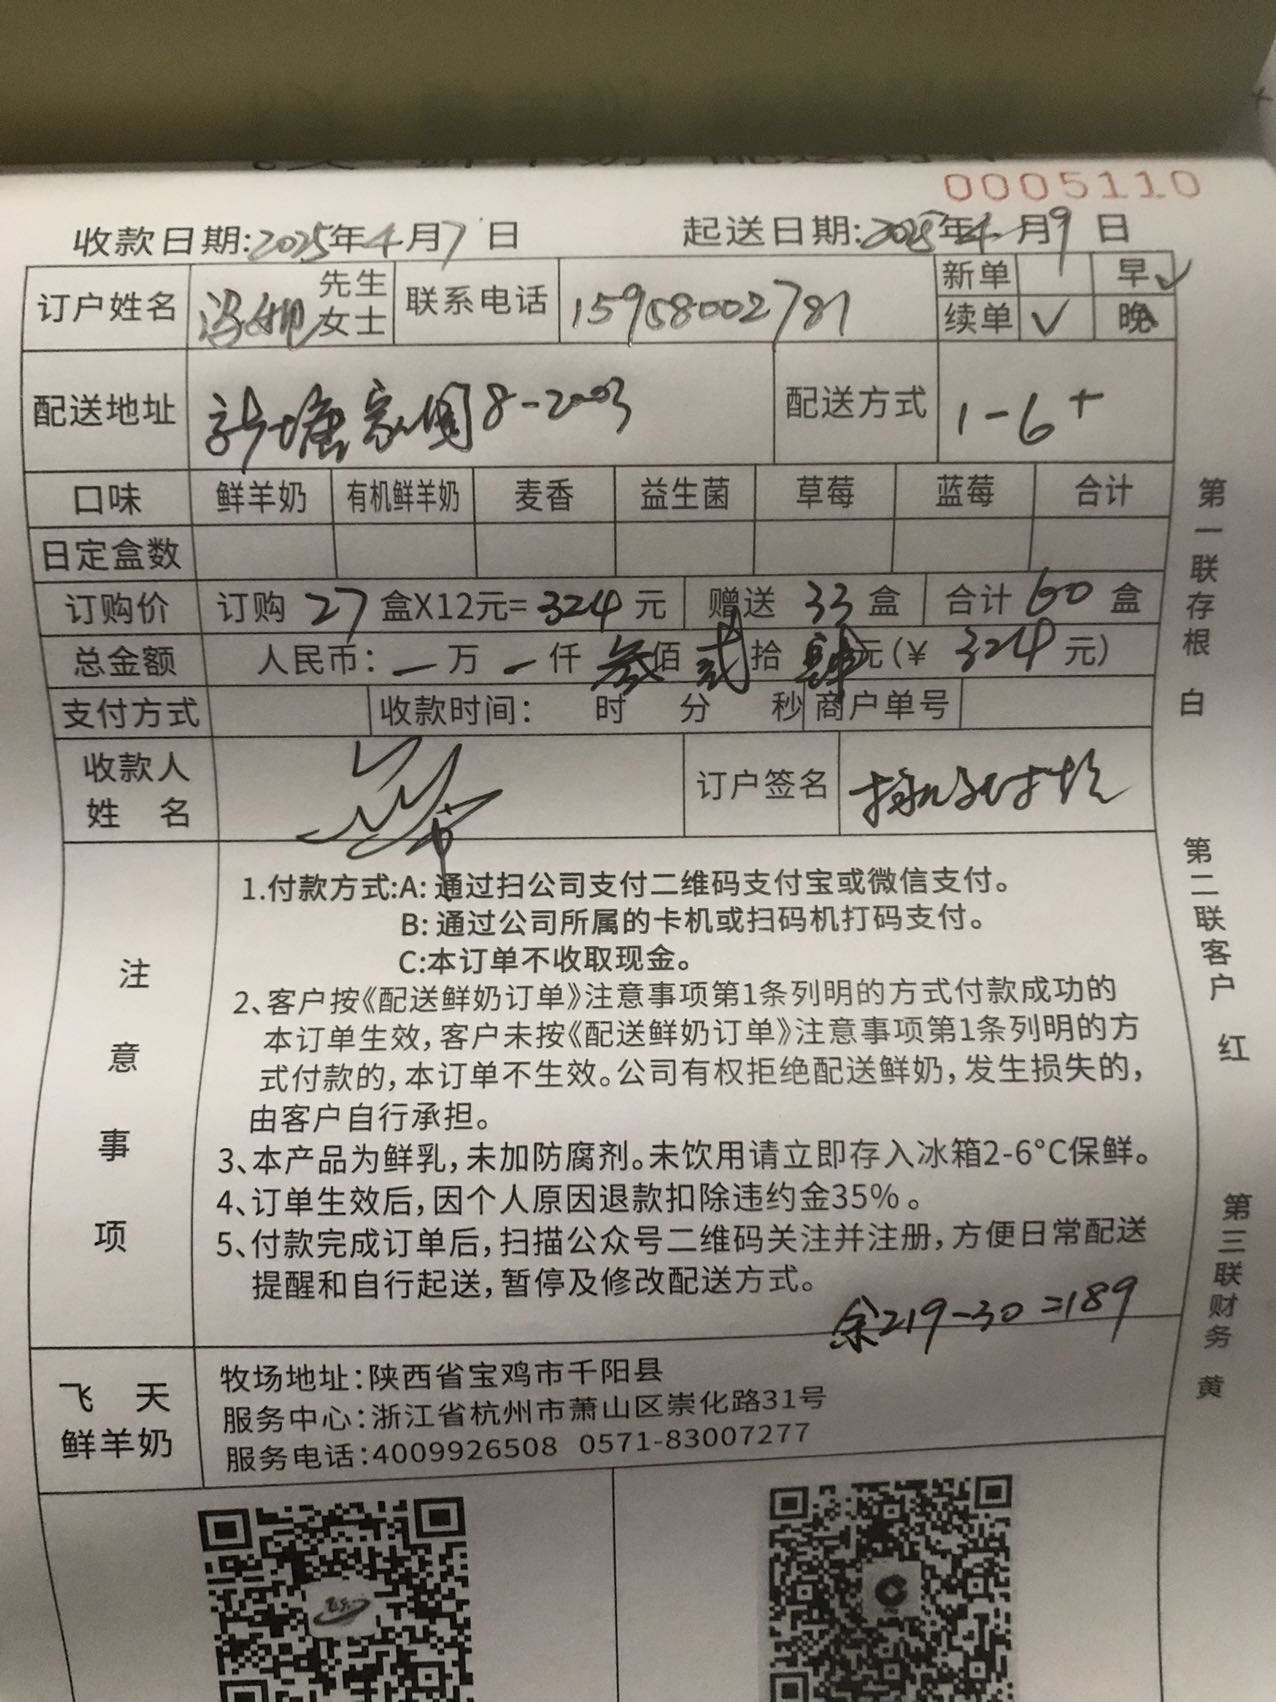 0005110
收款日期:2025年4月7日 起送日期:2025年4月9日
订户姓名 先生 女士 联系电话 15958002781 新单 早✓
续单 ✓ 晚
配送地址 新塘家园8-2003 配送方式 1-6+
口味 鲜羊奶 有机鲜羊奶 麦香 益生菌 草莓 蓝莓 合计
日定盒数
订购价 订购 27 盒X12元=324元 赠送 33 盒 合计 60 盒
总金额 人民币: 一 万 一 仟 叁 佰 贰 拾 肆 元(¥ 324 元)
支付方式 收款时间: 时 分 秒 商户单号
收款人 姓 名 订户签名 扫码付款
注意事项
1.付款方式:A: 通过扫公司支付二维码支付宝或微信支付。
B: 通过公司所属的卡机或扫码机打码支付。
C:本订单不收取现金。
2、客户按《配送鲜奶订单》注意事项第1条列明的方式付款成功的
本订单生效,客户未按《配送鲜奶订单》注意事项第1条列明的方
式付款的,本订单不生效。公司有权拒绝配送鲜奶,发生损失的,
由客户自行承担。
3、本产品为鲜乳,未加防腐剂。未饮用请立即存入冰箱2-6°C保鲜。
4、订单生效后,因个人原因退款扣除违约金35%。
5、付款完成订单后,扫描公众号二维码关注并注册,方便日常配送
提醒和自行起送,暂停及修改配送方式。
余219-30=189
飞天
鲜羊奶
牧场地址:陕西省宝鸡市千阳县
服务中心:浙江省杭州市萧山区崇化路31号
服务电话:4009926508 0571-83007277
第一联存根 白
第二联客户 红
第三联财务 黄